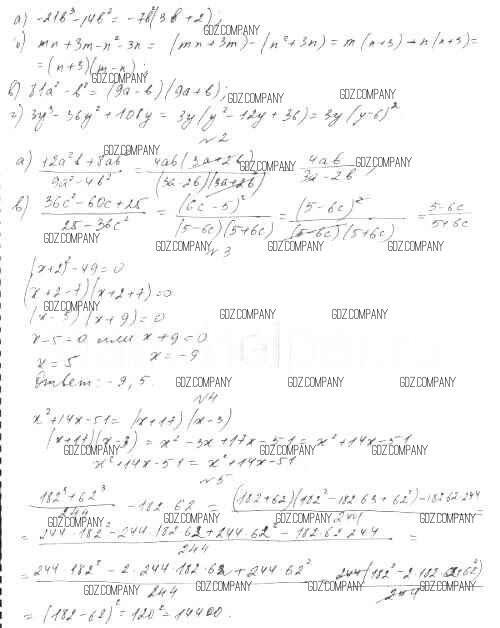 а) -21b³-14b² = -7b²(3b+2);
б) mn+3m-n²-3n = (mn+3m)-(n²+3n) = m(n+3)-n(n+3) =
= (n+3)(m-n);
в) 81a²-b² = (9a-b)(9a+b);
г) 3y³-36y²+108y = 3y(y²-12y+36) = 3y(y-6)²
№2
а) 12a²b+8ab / 9a²-4b² = 4ab(3a+2b) / (3a-2b)(3a+2b) = 4ab / 3a-2b;
в) 36c²-60c+25 / 25-36c² = (6c-5)² / (5-6c)(5+6c) = (5-6c)² / (5-6c)(5+6c) = 5-6c / 5+6c
№3
(x+2)²-49=0
(x+2-7)(x+2+7)=0
(x-5)(x+9)=0
x-5=0 или x+9=0
x=5 x=-9
Ответ: -9, 5.
№4
x²+14x-51 = (x+17)(x-3)
(x+17)(x-3) = x²-3x+17x-51 = x²+14x-51
x²+14x-51 = x²+14x-51
№5
182³+62³ / 244 - 182·62 = (182+62)(182²-182·62+62²)-182·62·244 / 244 =
= 244·182²-244·182·62+244·62²-182·62·244 / 244 =
= 244·182²-2·244·182·62+244·62² / 244 = 244(182²-2·182·62+62²) / 244
= (182-62)² = 120² = 14400.
GDZ.COMPANY